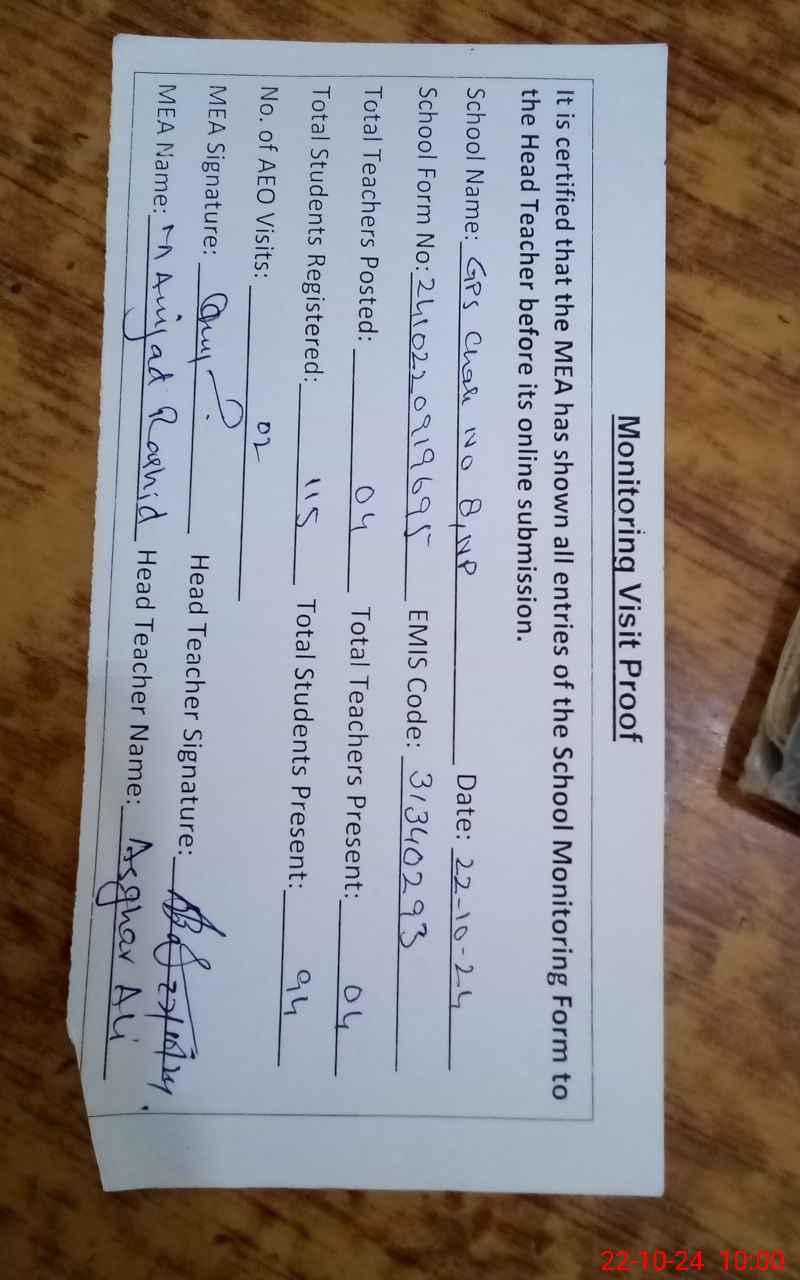 Monitoring Visit Proof
It is certified that the MEA has shown all entries of the School Monitoring Form to
the Head Teacher before its online submission.
School Name: GPS Chak No 8/NP Date: 22-10-24
School Form No: 2410220919695 EMIS Code: 31340293
Total Teachers Posted: 04 Total Teachers Present: 04
Total Students Registered: 115 Total Students Present: 94
No. of AEO Visits: 02
MEA Signature: Head Teacher Signature: 22/10/24
MEA Name: M Amjad Rashid Head Teacher Name: Asghar Ali
22-10-24 10:00